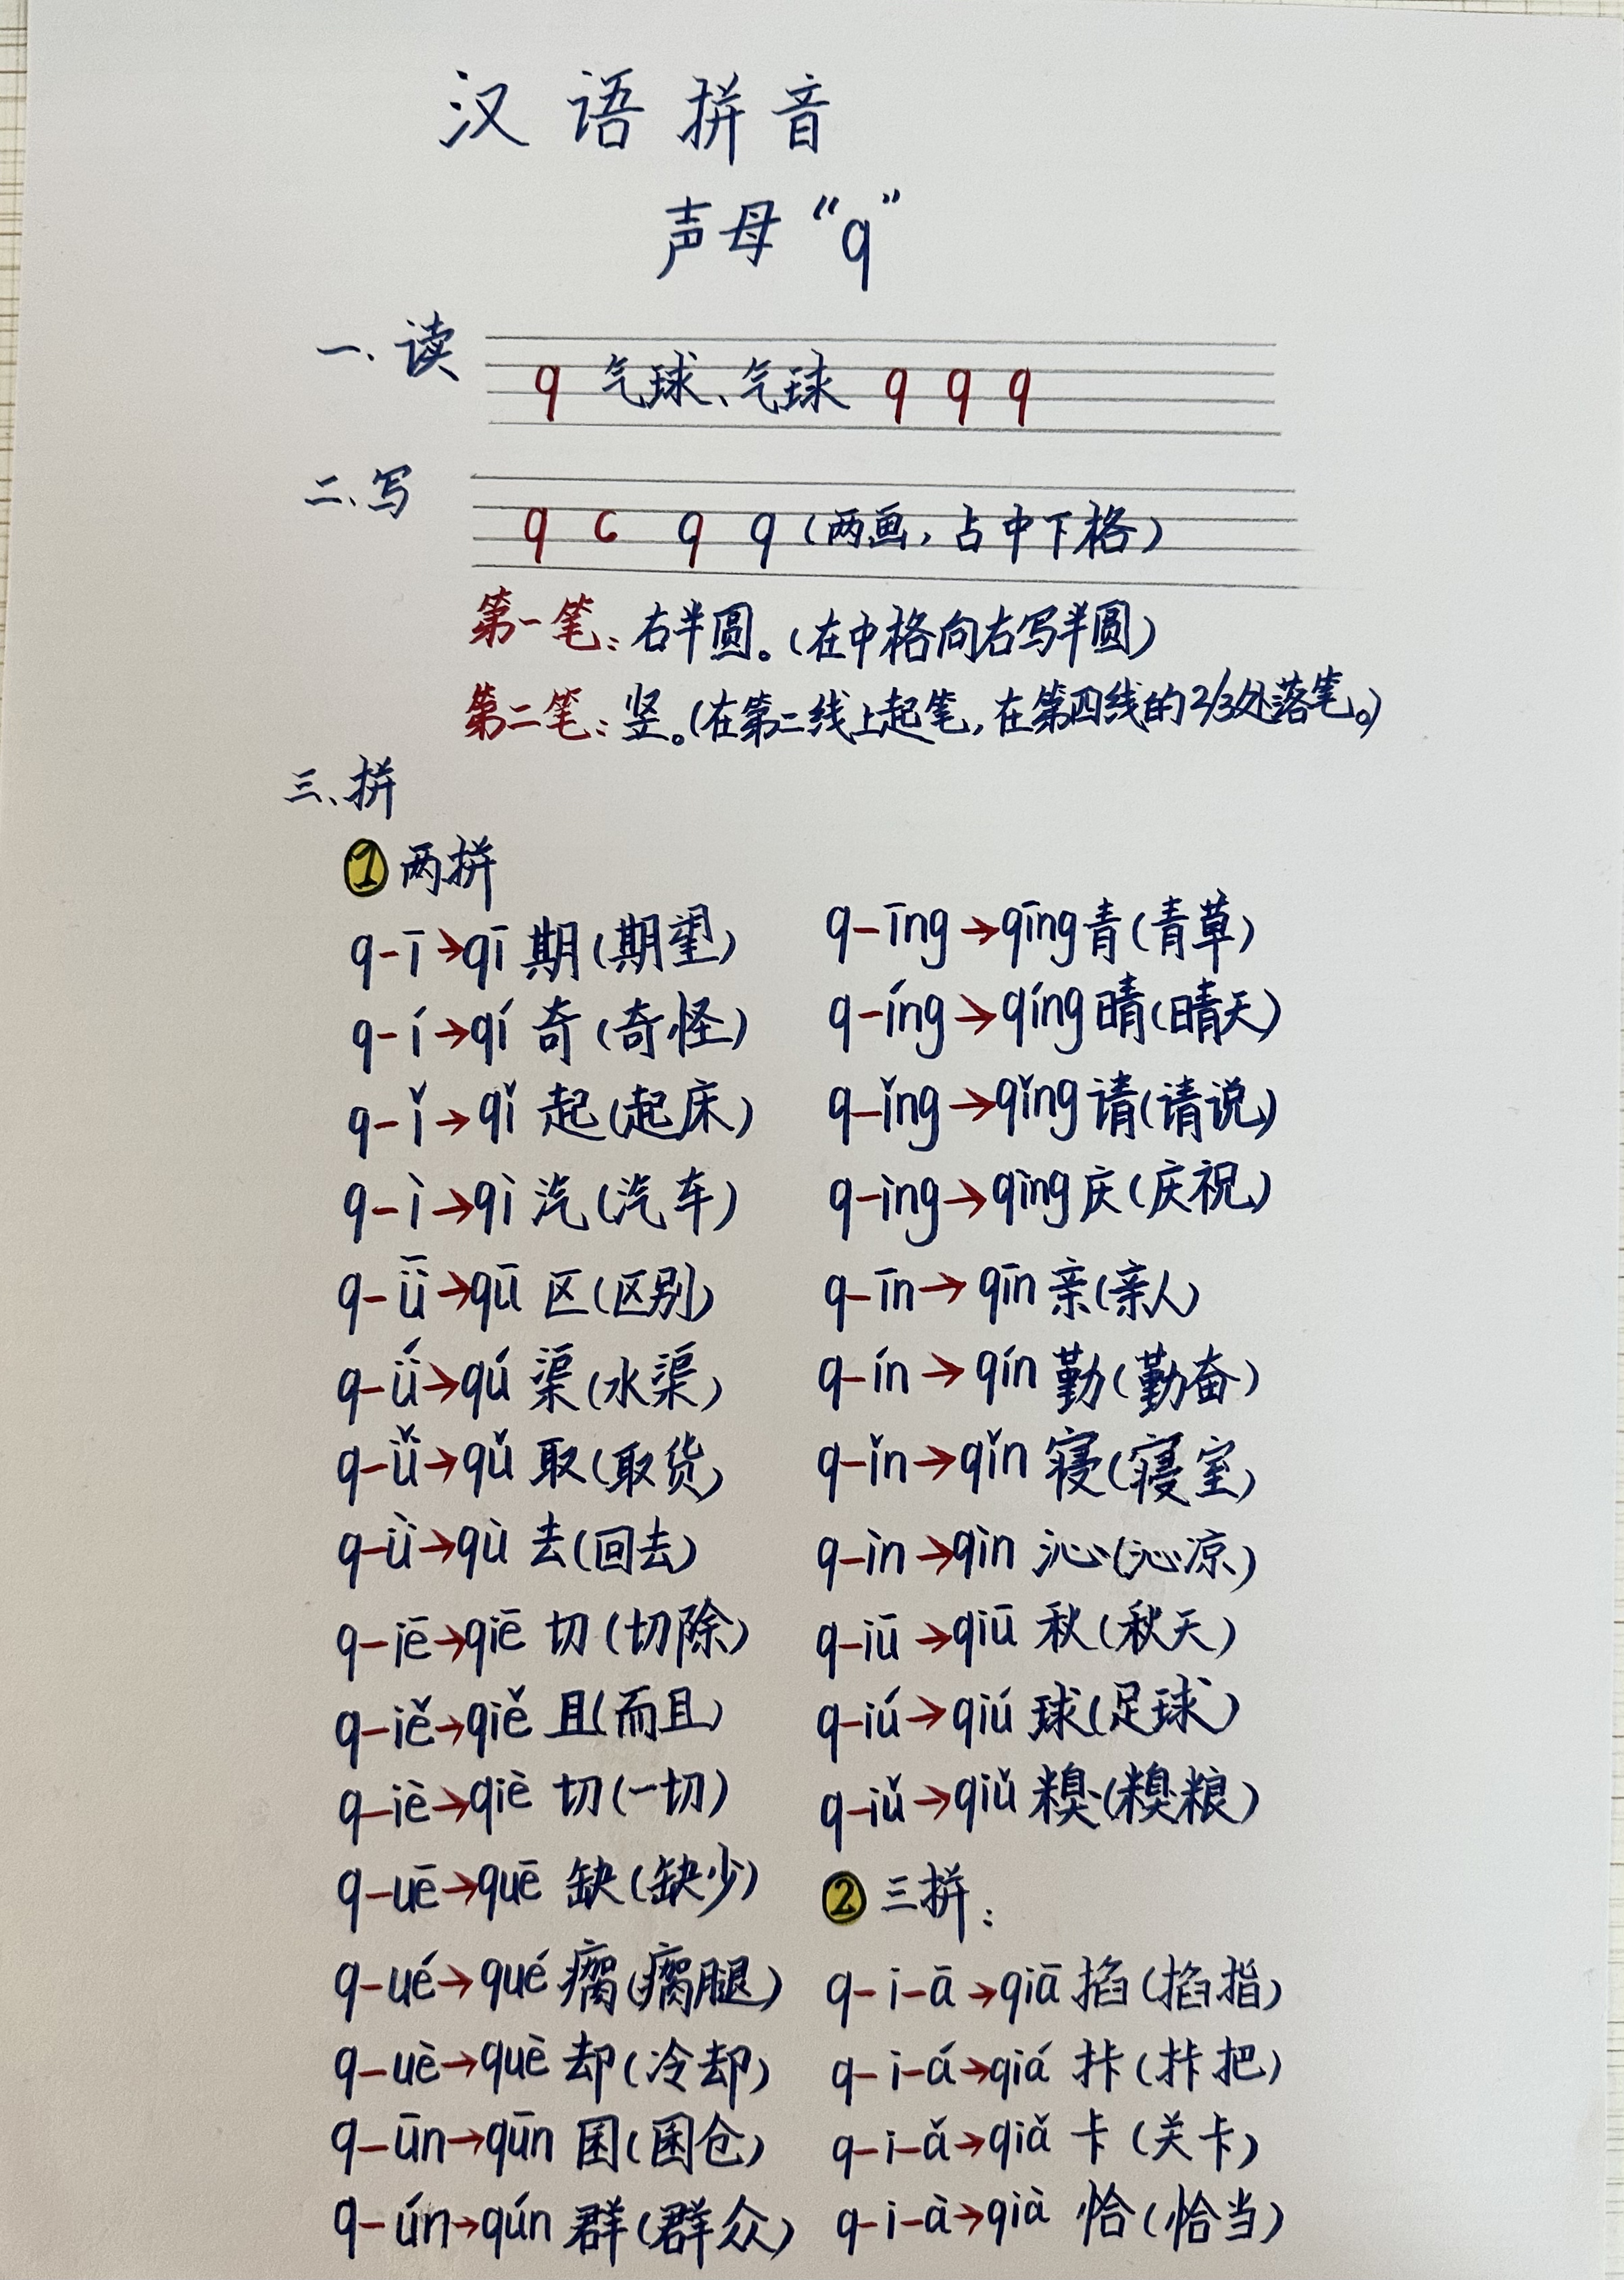 汉语拼音
声母“q”
一、读
q 气球、气球 q q q
二、写
q c q q（两画，占中下格）
第一笔：右半圆。（在中格向右写半圆）
第二笔：竖。（在第二线上起笔，在第四线的2/3处落笔。）
三、拼
①两拼
q-ī→qī 期（期望）
q-í→qí 奇（奇怪）
q-ǐ→qǐ 起（起床）
q-ì→qì 汽（汽车）
q-ǖ→qū 区（区别）
q-ǘ→qú 渠（水渠）
q-ǚ→qǔ 取（取货）
q-ǜ→qù 去（回去）
q-iē→qiē 切（切除）
q-iě→qiě 且（而且）
q-iè→qiè 切（一切）
q-uē→quē 缺（缺少）
q-ué→qué 瘸（瘸腿）
q-uè→què 却（冷却）
q-ūn→qūn 囷（囷仓）
q-ún→qún 群（群众）
q-īng→qīng 青（青草）
q-íng→qíng 晴（晴天）
q-ǐng→qǐng 请（请说）
q-ìng→qìng 庆（庆祝）
q-īn→qīn 亲（亲人）
q-ín→qín 勤（勤奋）
q-ǐn→qǐn 寝（寝室）
q-ìn→qìn 沁（沁凉）
q-iū→qiū 秋（秋天）
q-iú→qiú 球（足球）
q-iǔ→qiǔ 糗（糗粮）
②三拼：
q-i-ā→qiā 掐（掐指）
q-i-á→qiá 拤（拤把）
q-i-ǎ→qiǎ 卡（关卡）
q-i-à→qià 恰（恰当）